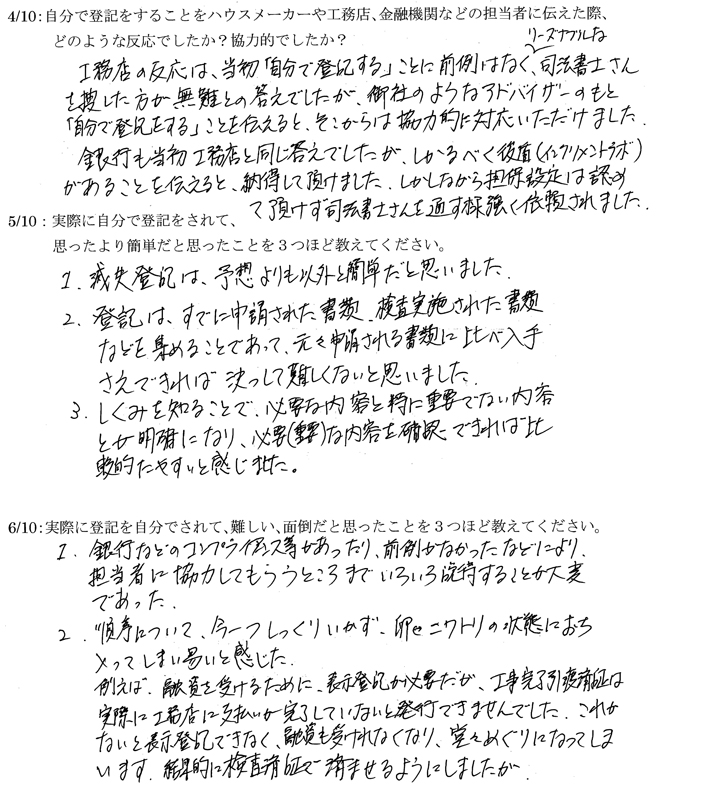 4/10:自分で登記をすることをハウスメーカーや工務店、金融機関などの担当者に伝えた際、
どのような反応でしたか？協力的でしたか？
リーズナブルな
工務店の反応は、当初「自分で登記する」ことに前例はなく、司法書士さん
を捜した方が無難との答えでしたが、御社のようなアドバイザーのもと
「自分で登記をする」ことを伝えると、そこからは協力的に対応いただけました。
銀行も当初工務店と同じ答えでしたが、しかるべく後盾(インクリメントラボ)
があることを伝えると、納得して頂けました。しかしながら担保設定は認め
て頂けず司法書士さんを通す様強く依頼されました。
5/10：実際に自分で登記をされて、
思ったより簡単だと思ったことを３つほど教えてください。
1. 滅失登記は、予想よりも以外と簡単だと思いました。
2. 登記は、すでに申請された書類、検査実施された書類
などを集めることであって、元々申請される書類に比べ入手
さえできれば決っして難しくないと思いました。
3. しくみを知ることで、必要な内容と特に重要でない内容
とが明確になり、必要(重要)な内容を確認できれば比
較的たやすいと感じました。
6/10:実際に登記を自分でされて、難しい、面倒だと思ったことを３つほど教えてください。
1. 銀行などのコンプライアンス等があったり、前例がなかったなどにより、
担当者に協力してもらうところまでいろいろ説得することが大変
であった。
2. 順序について、今一つしっくりいかず、卵とニワトリの状態におち
入ってしまい易いと感じた。
例えば、融資を受けるために、表示登記が必要だが、工事完了引渡済証は
実際に工務店に支払いが完了していないと発行できませんでした。これが
ないと表示登記できなく、融資も受けれなくなり、堂々めぐりになってしま
います。結果的に検査済証で済ませるようにしましたが